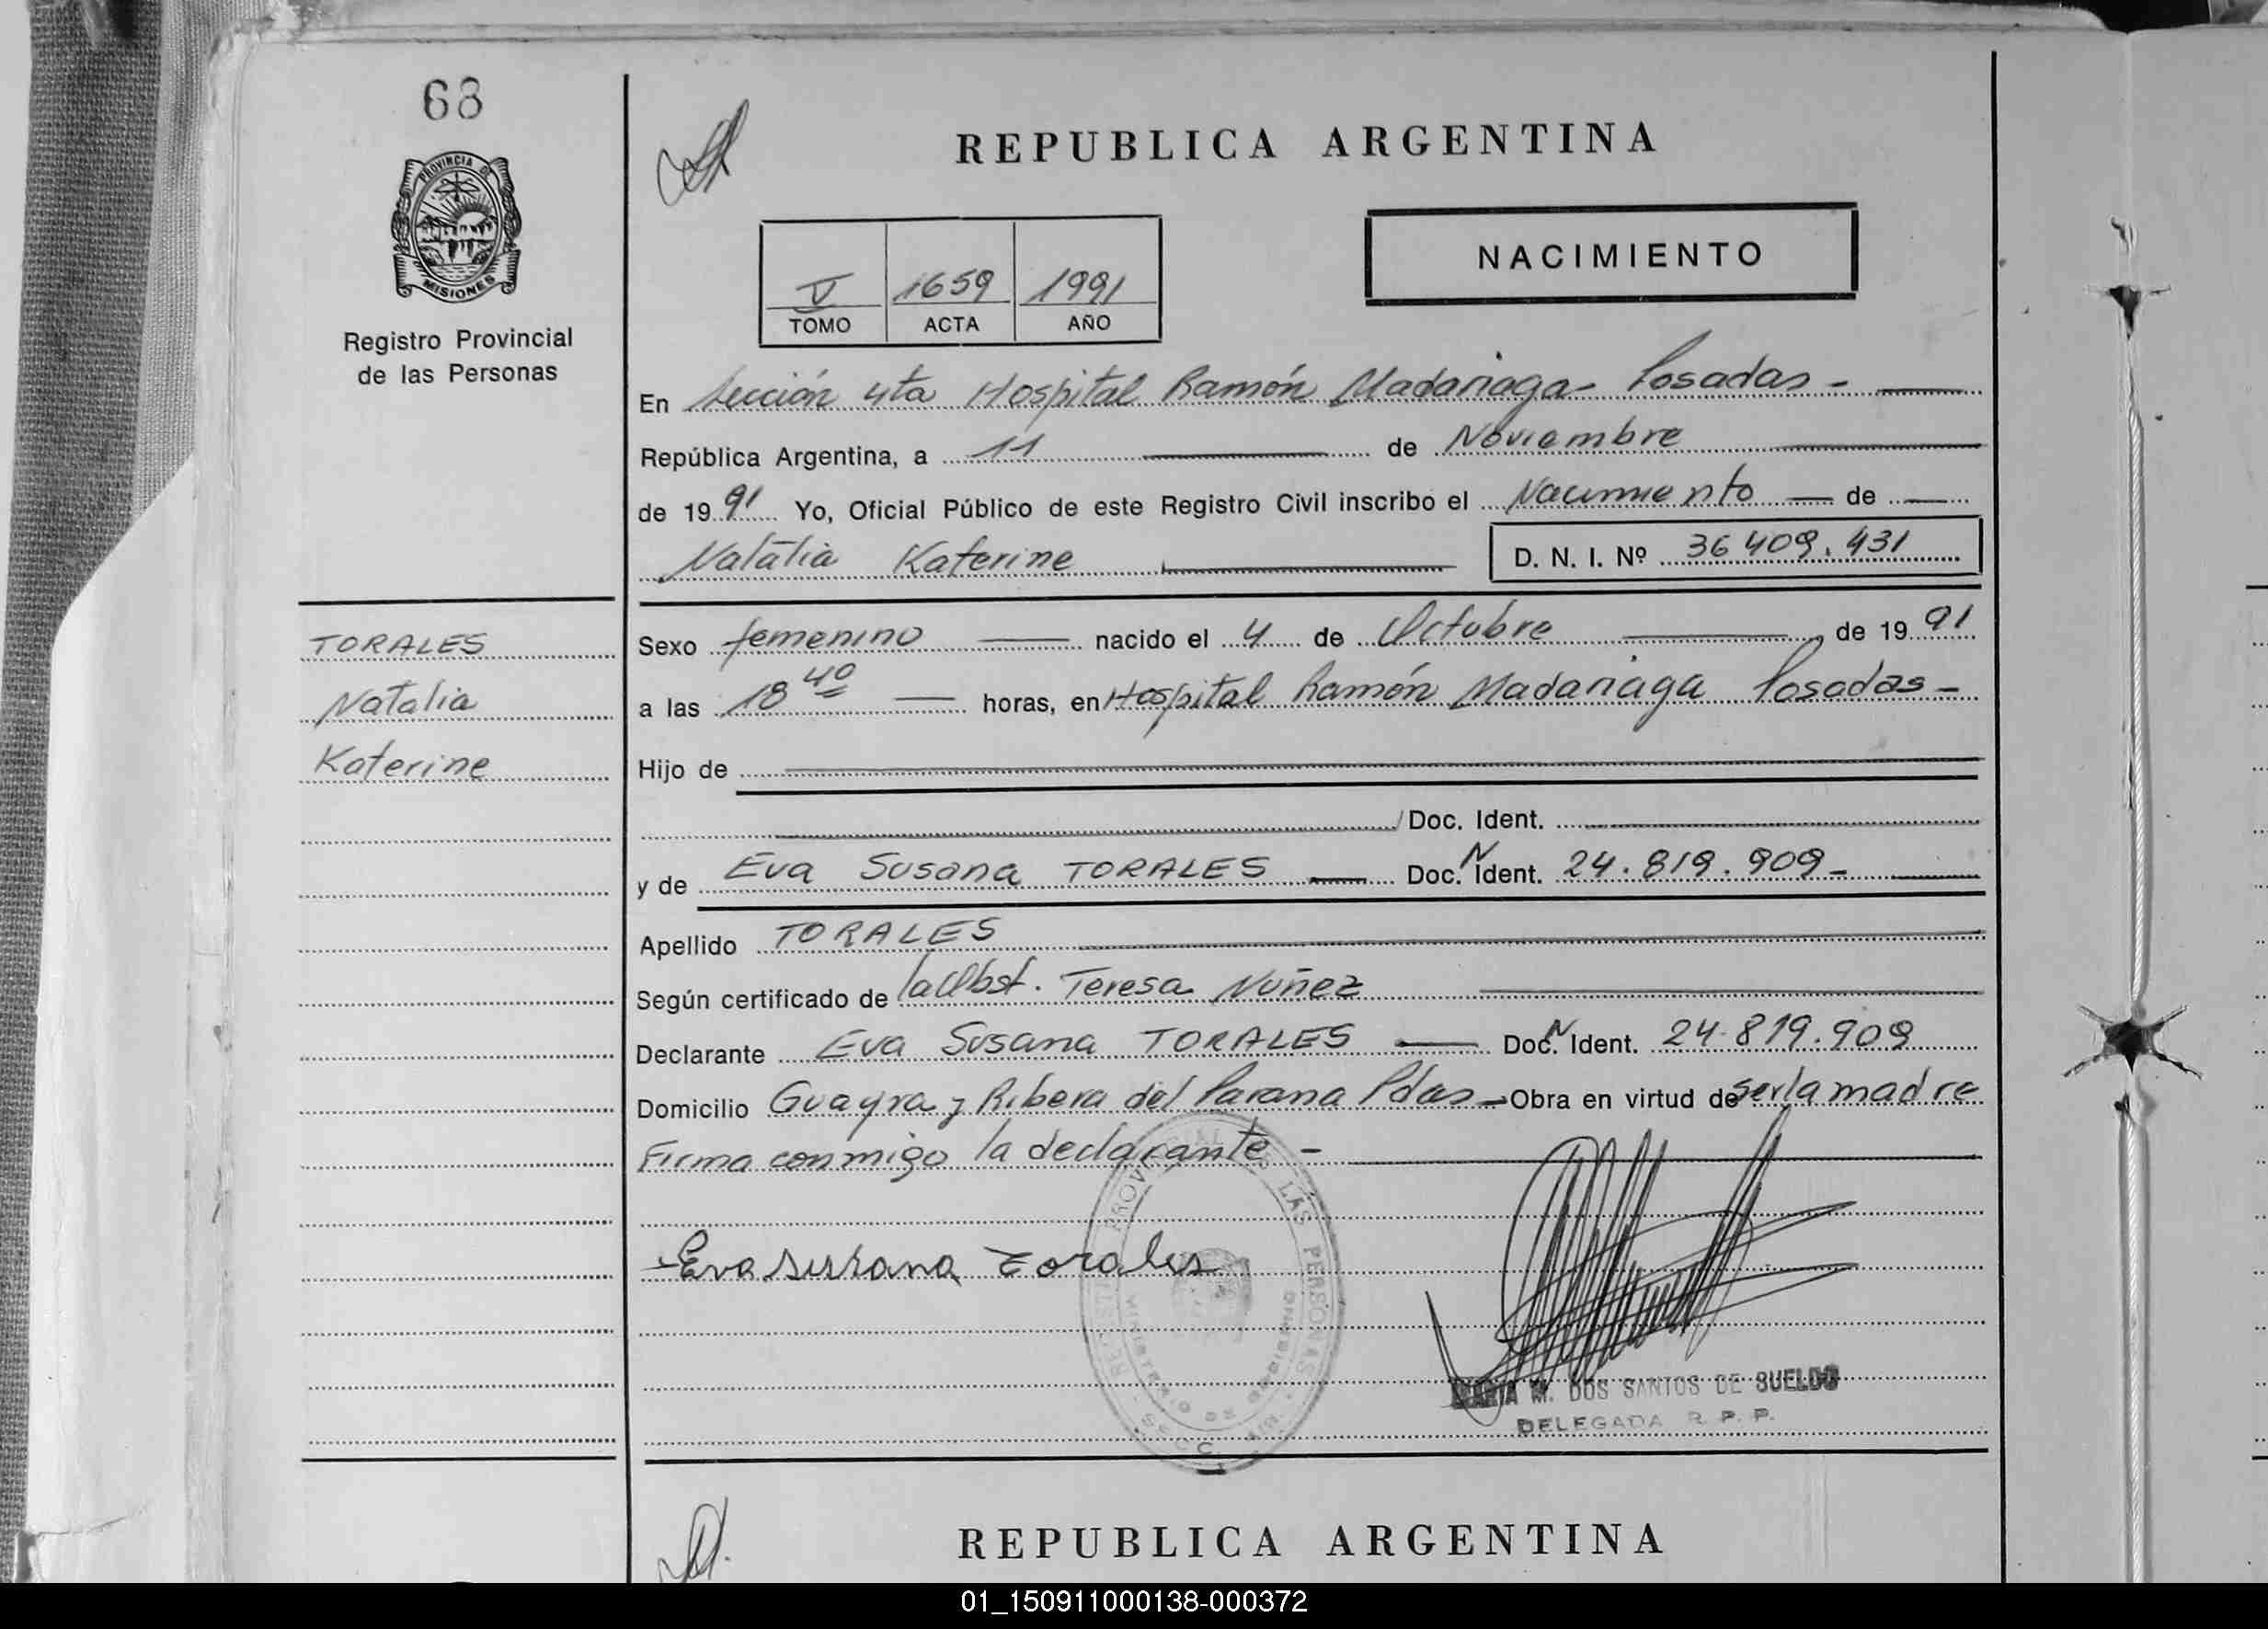 68
PROVINCIA DE
MISIONES
Registro Provincial
de las Personas
REPUBLICA ARGENTINA
NACIMIENTO
V 1659 1991
TOMO ACTA AÑO
En Sección 4ta Hospital Ramón Madariaga - Posadas -
República Argentina, a 11 de Noviembre
de 1991 Yo, Oficial Público de este Registro Civil inscribo el Nacimiento de
Natalia Katerine D. N. I. Nº 36409.431
TORALES
Natalia
Katerine
Sexo femenino nacido el 4 de Octubre, de 1991
a las 18 40 horas, en Hospital Ramón Madariaga Posadas -
Hijo de
Doc. Ident.
y de Eva Susana TORALES Doc. N Ident. 24.819.909 -
Apellido TORALES
Según certificado de la Obst. Teresa Nuñez
Declarante Eva Susana TORALES Doc. N Ident. 24.819.909
Domicilio Guayra y Ribera del Parana Pdas - Obra en virtud de ser la madre
Firma conmigo la declarante -
Eva Susana Torales
LAS PERSONAS
MINISTERIO DE GOBIERNO
MARIA M. DOS SANTOS DE SUELDO
DELEGADA R. P. P.
REPUBLICA ARGENTINA
01_150911000138-000372